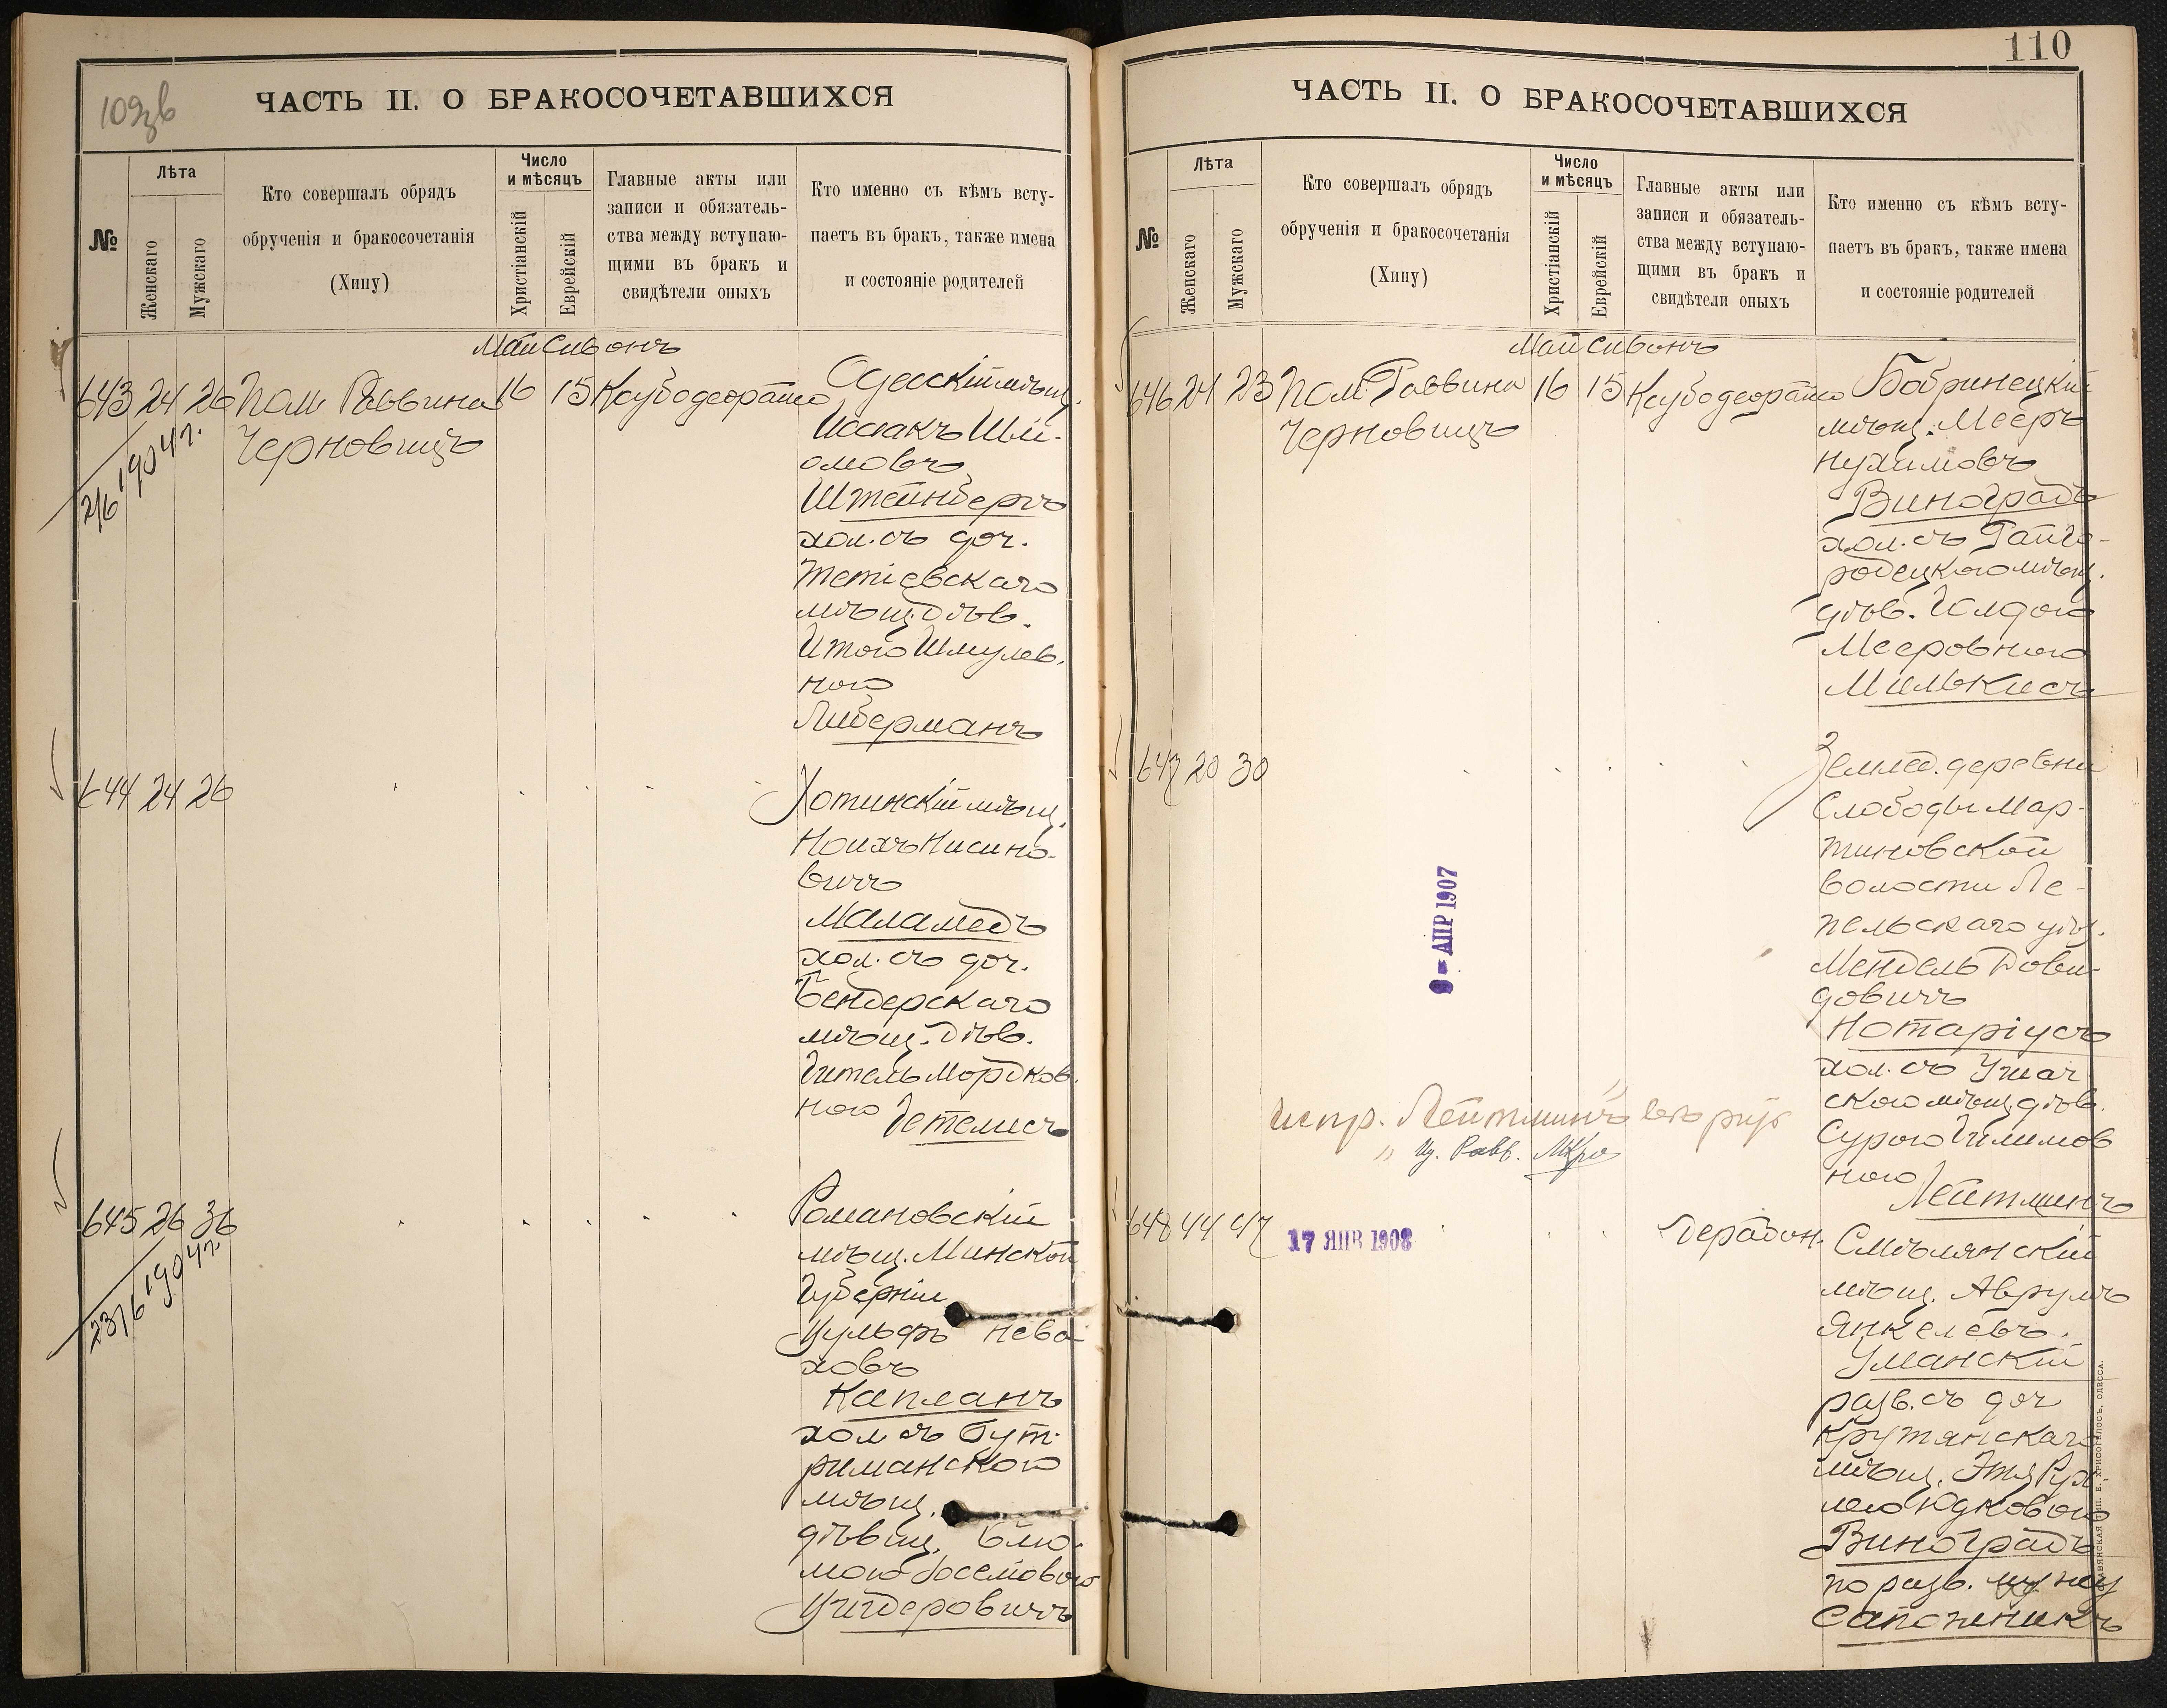 109 зв
ЧАСТЬ II. О БРАКОСОЧЕТАВШИХСЯ
№
Лѣта
Женскаго
Мужскаго
Кто совершалъ обрядъ
обрученія и бракосочетанія
(Хипу)
Число
и мѣсяцъ
Христіанскій
Еврейскій
Главные акты или
записи и обязатель-
ства между вступаю-
щими въ бракъ и
свидѣтели оныхъ
Кто именно съ кѣмъ всту-
паетъ въ бракъ, также имена
и состояніе родителей
Май Сивонъ
643 24 26 Пом Раввина 16 15
Черновицъ
2/6 1904 г.
Одесскій мѣщ.
Исаакъ Шлі-
омовъ
Штейнбергъ
хол. съ доч.
Тетіевскаго
мѣщ. дѣв.
Итою Шмулев.
ною
Либерманъ
644 24 26
Хотинскій мѣщ.
Ноихъ Нисино-
вичъ
Маламедъ
хол. съ доч.
Бендерскаго
мѣщ. дѣв.
Гитель Мордков.
ною Гетелисъ
645 26 36
23/6 1904 г.
Романовскій
мѣщ. Минской
Губерніи
Вульфъ Нева
ховъ
Капланъ
хол съ Бут-
риманскою
мѣщ.
дѣвиц. Блю-
мою
110
ЧАСТЬ II. О БРАКОСОЧЕТАВШИХСЯ
№
Лѣта
Женскаго
Мужскаго
Кто совершалъ обрядъ
обрученія и бракосочетанія
(Хипу)
Число
и мѣсяцъ
Христіанскій
Еврейскій
Главные акты или
записи и обязатель-
ства между вступаю-
щими въ бракъ и
свидѣтели оныхъ
Кто именно съ кѣмъ всту-
паетъ въ бракъ, также имена
и состояніе родителей
Май Сивонъ
646 24 23 Пом. Раввина 16 15
Черновицъ
Бобринецкій
мѣщ. Мееръ
Нухимовъ
Виноградъ
хол. съ Гайго-
родецкою мѣщ.
дѣв. Голдою
Мееровною
Милькисъ
647 20 30
Землед. деревни
Слободы Мар-
тиновской
волости Ле-
пельскаго уѣз.
Мендель Дови-
довичъ
Нотаріусъ
хол. съ Ушач
скою мѣщ. дѣв.
Сурою
ною
Лейтминъ
9 = АПР 1907
испр. „Лейтминъ"
„ Раввъ
648 44 47
17 ЯНВ 1908
Смѣлянскій
мѣщ. Аврумъ
Янкелевъ.
Уманскій
разв. съ доч
Крутянскаго
мѣщ. Этя Рух-
лею Юдковою
Виноградъ
по разв. мужу
Сапожникъ
СЛАВЯНСКАЯ ТИП. Е. ХРИСОГЕЛОСЪ, ОДЕССА.